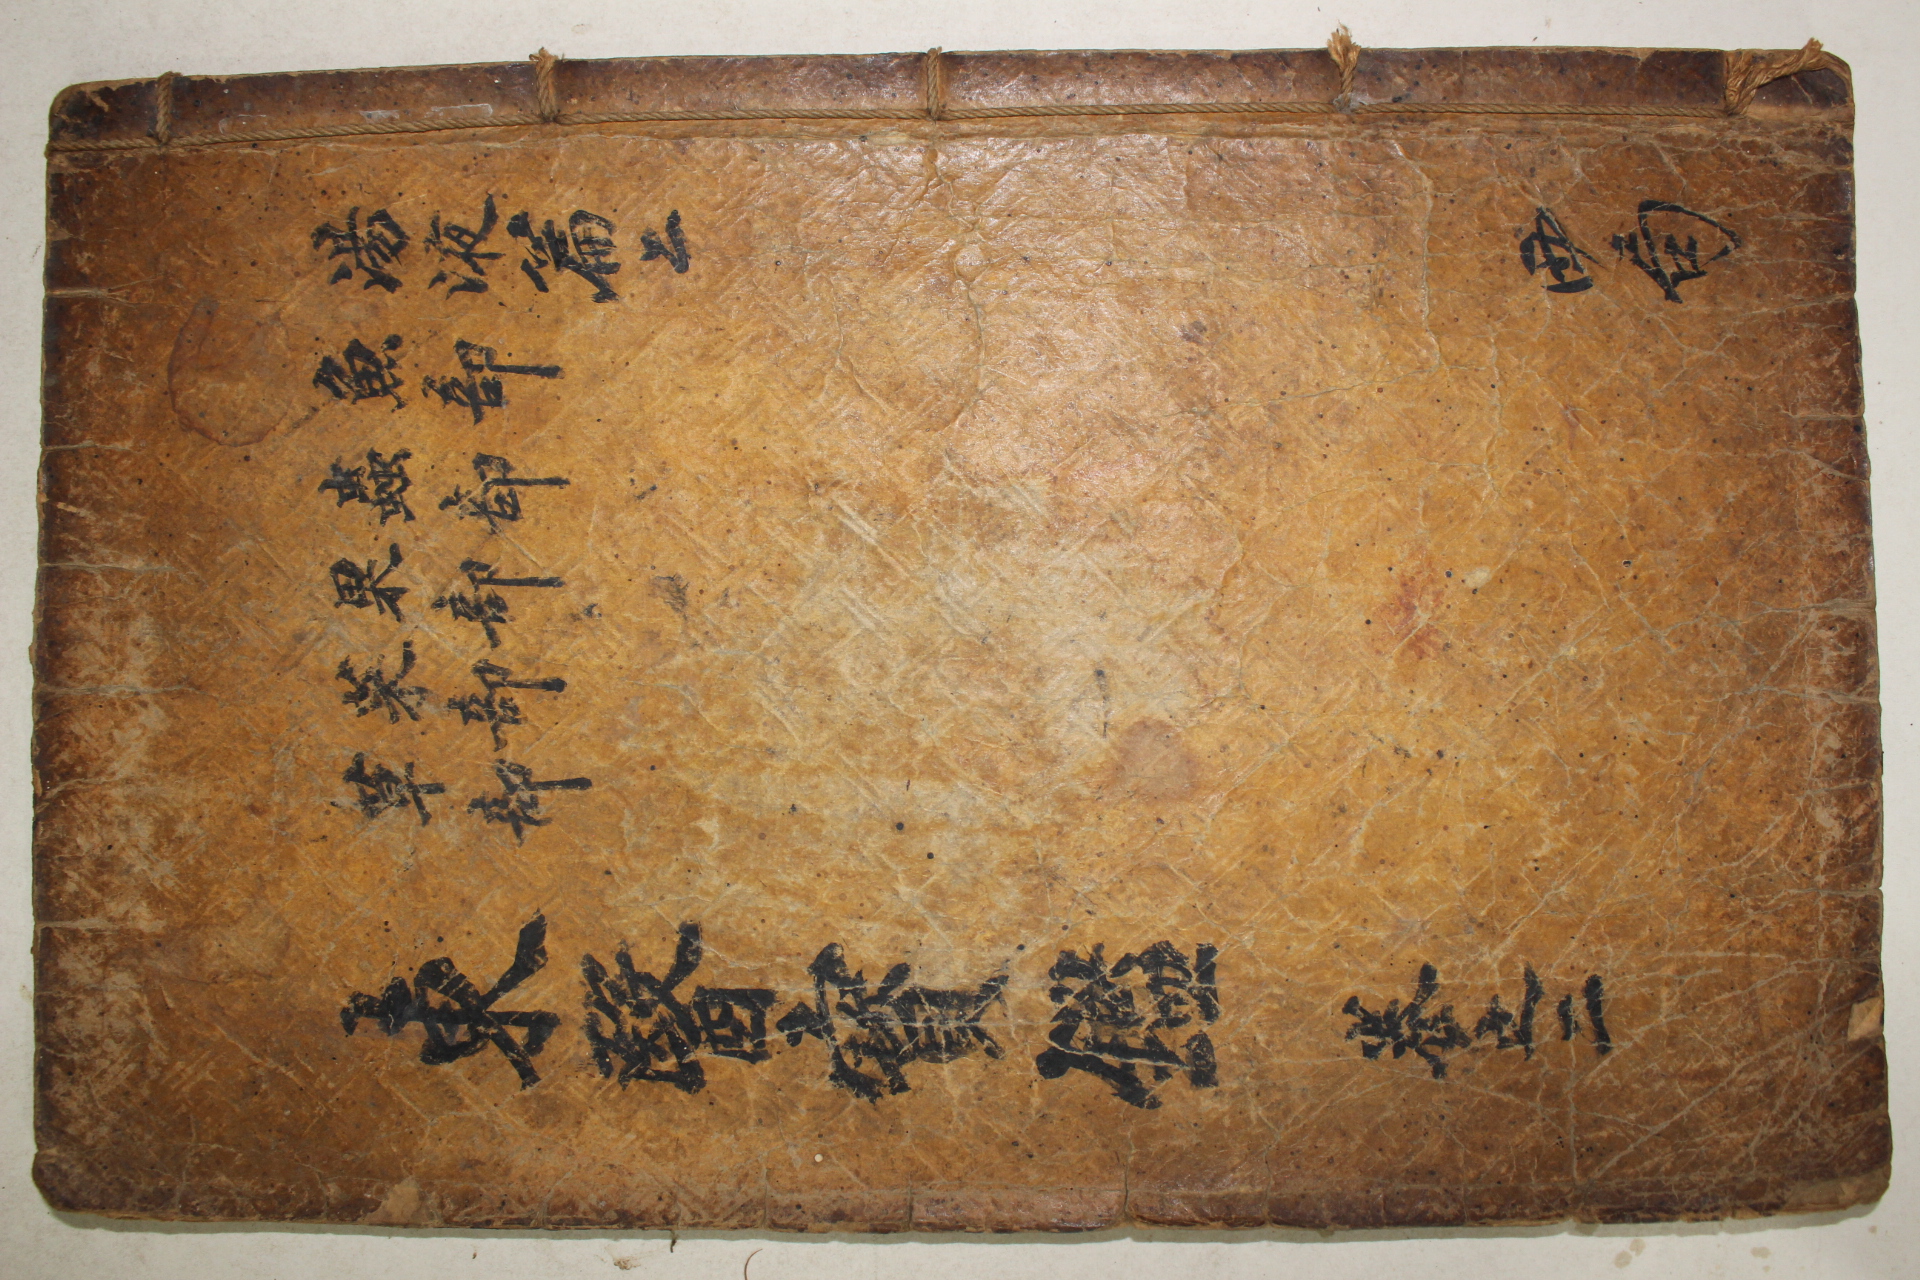 湯液篇上
魚部
蟲部
果部
菜部
草部
東醫寶鑑 卷之二